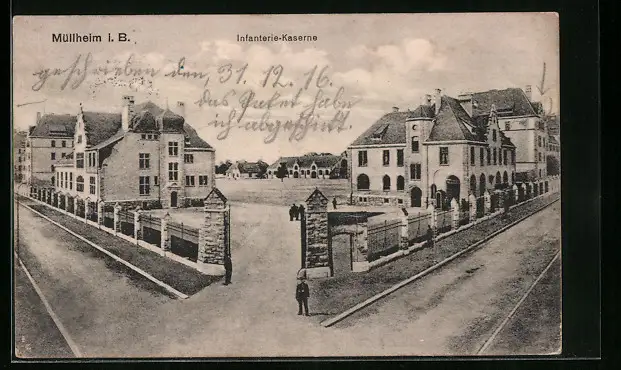 Müllheim i. B.
Infanterie-Kaserne
geschrieben den, 31. 12. 16.
das Paket habe
ich abgeschickt.